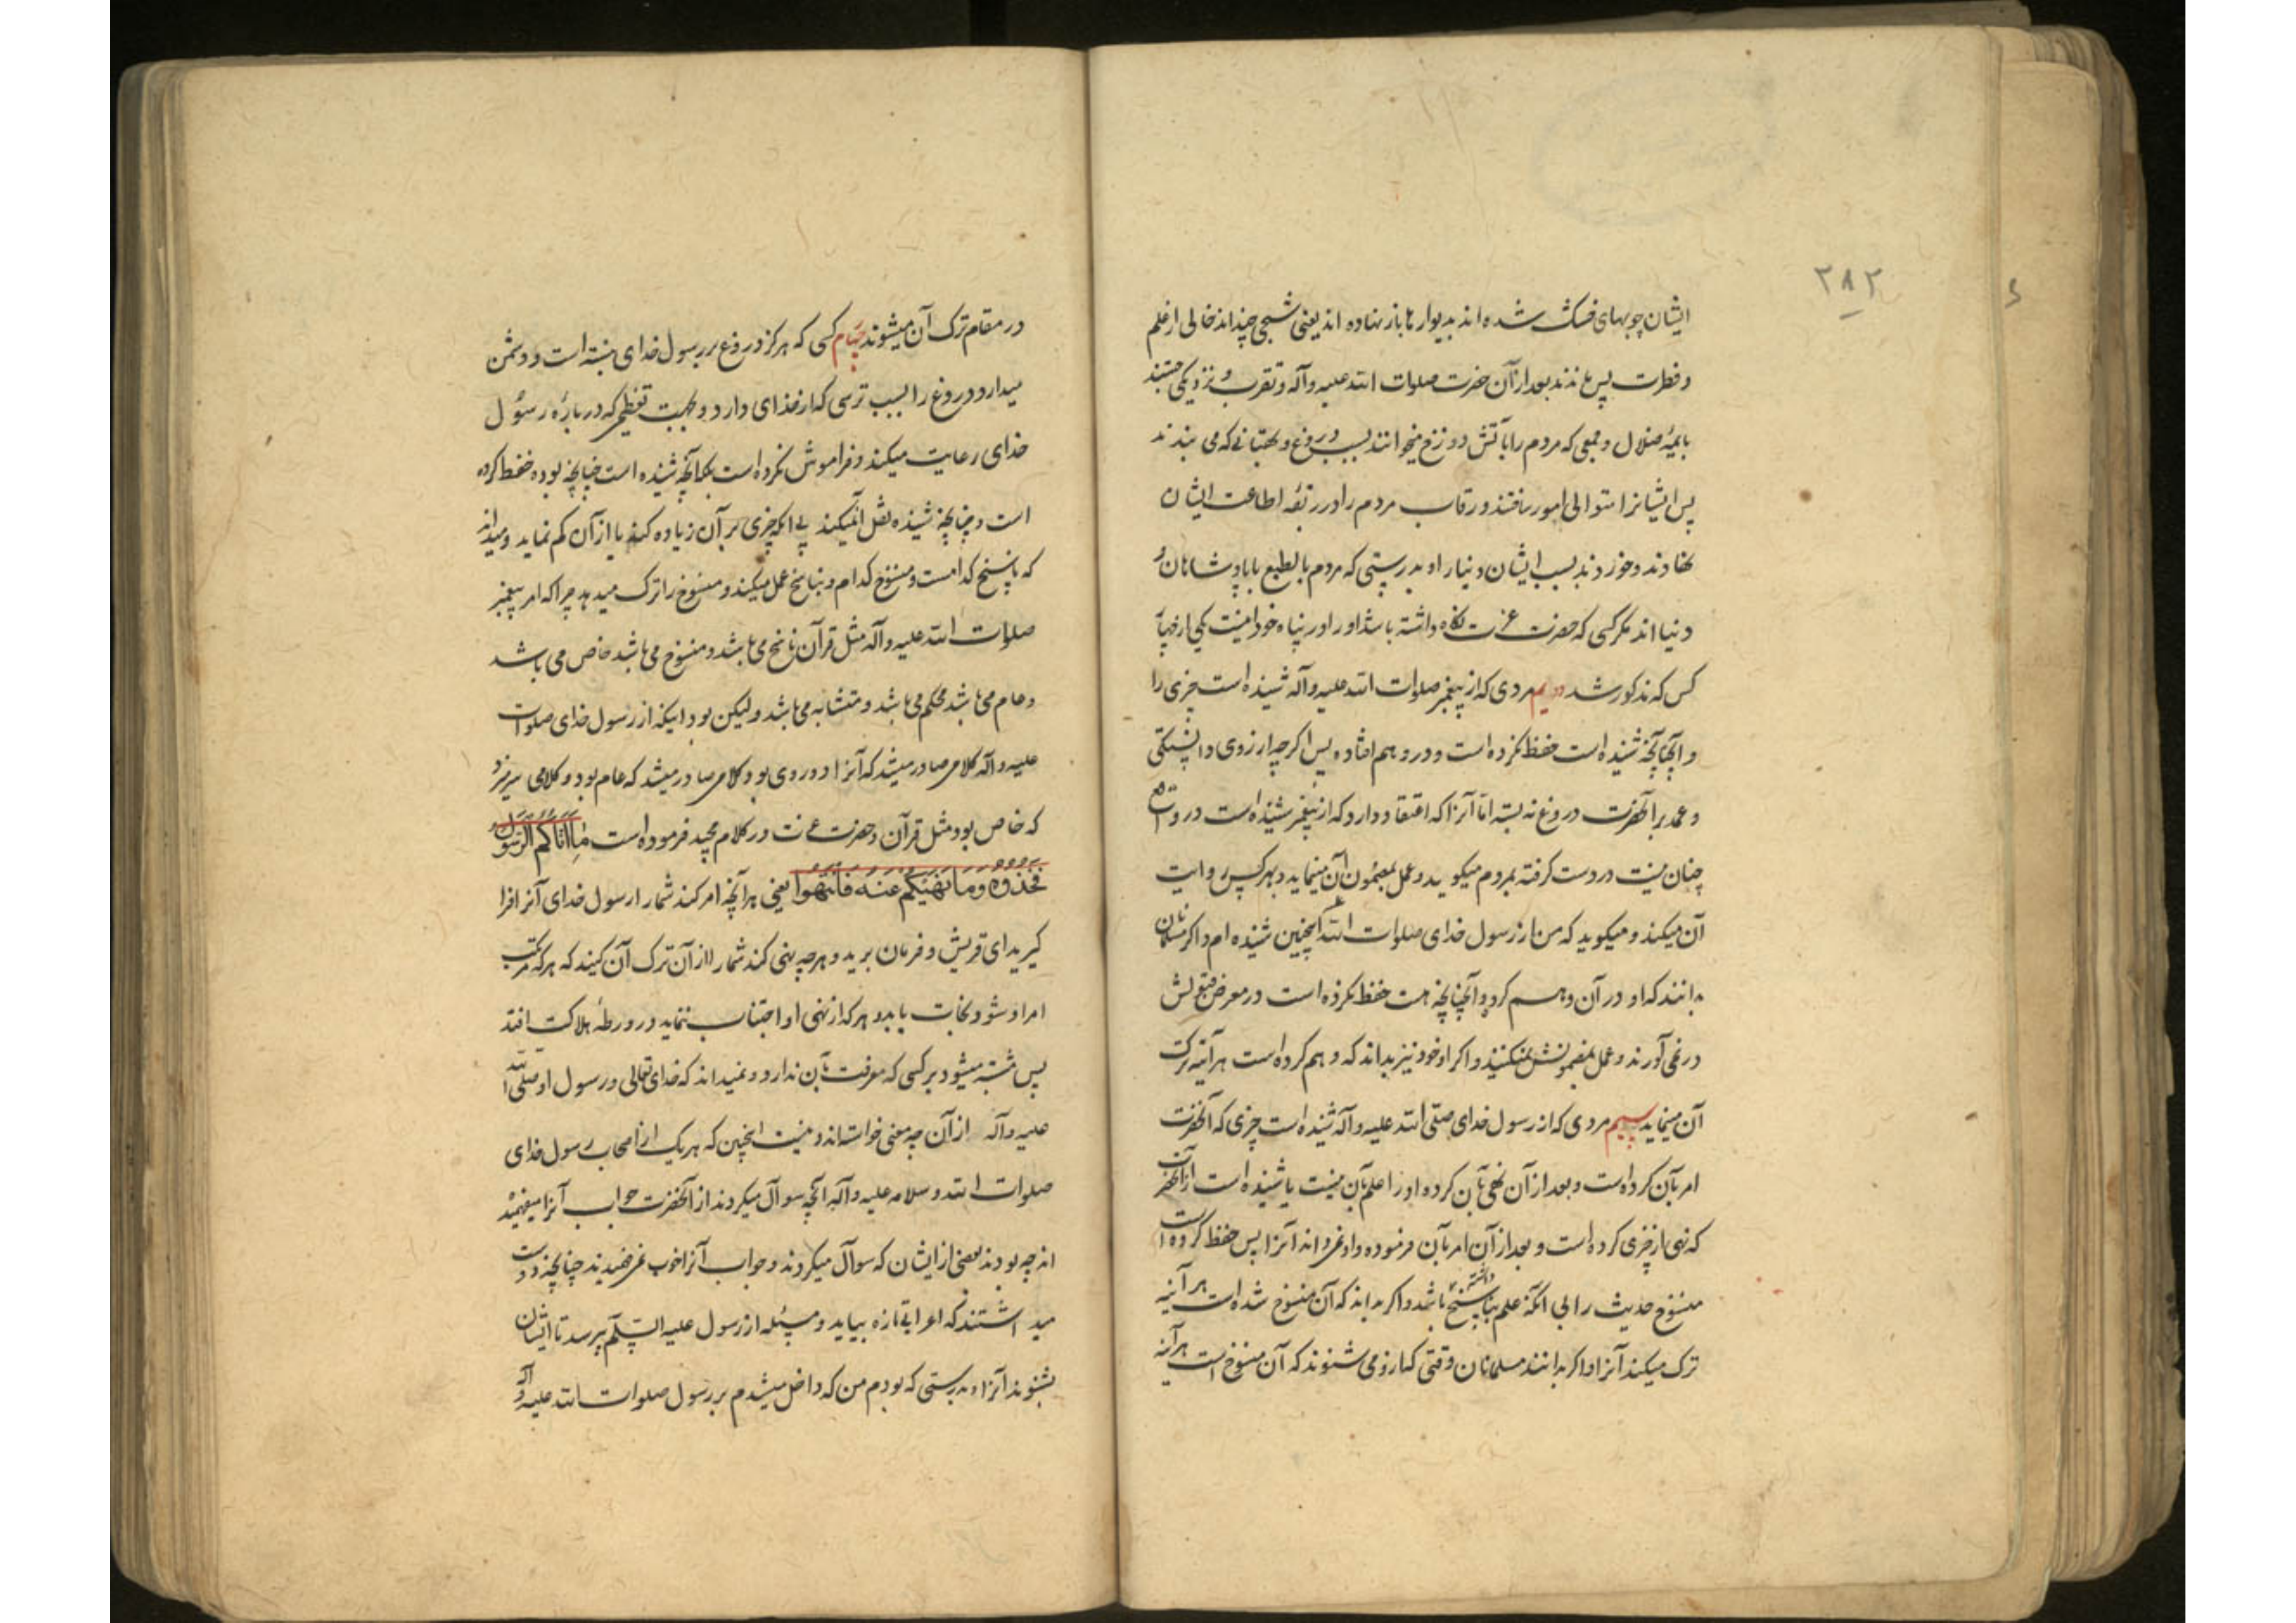 ۲۸۲
ایشان چوبهای خشک شده اند بدیوارها باز نهاده اند یعنی شبحی چند اند خالی از علم
و فطرت پس ماندند بعد از آن حضرت صلوات الله علیه وآله و تقرب و نزدیکی جستند
بایمهٔ ضلال و جمعی که مردم را بآتش دوزخ میخوانند بسبب دروغ و بهتانی که می بندند
پس ایشانرا متوالی امور ساختند و رقاب مردم را در ربقهٔ اطاعت ایشان
نهادند و خوردند بسبب ایشان دنیا را و بدرستی که مردم بالطبع با پادشاهان و
دنیا اند مگر کسی که حضرت عزت نگاه داشته باشد او را در پناه خود اینست یکی از چهار
کس که مذکور شد دویم مردی که از پیغمبر صلوات الله علیه وآله شنیده است چیزی را
و آنچنانچه شنیده است حفظ نکرده است و در و هم افتاده پس اگر چه از روی دانستگی
و عمد بر آنحضرت دروغ نه بسته اما آنرا که اعتقاد دارد که از پیغمبر شنیده است در واقع
چنان نیست در دست گرفته بمردم میگوید و عمل بمضمون آن مینماید و بهر کس روایت
آن میکند و میگوید که من از رسول خدای صلوات الله علیه اینچنین شنیده ام و اگر مسلمانان
بدانند که او در آن وهم کرده و آنچنانچه هست حفظ نکرده است در معرض قبولش
در نمی آورند و عمل بمضمونش نمیکنند و اگر او خود نیز بداند که وهم کرده است هر آینه ترک
آن مینماید سیم مردی که از رسول خدای صلی الله علیه وآله شنیده است چیزی که آنحضرت
امر بآن کرده است و بعد از آن نهی بآن کرده و او را علم بآن نیست یا شنیده است از آنحضرت
که نهی از چیزی کرده است و بعد از آن امر بآن فرموده و او نمی داند آنرا پس حفظ کرده است
منسوخ حدیث را بی آنکه علم بناسخ داشته باشد و اگر بداند که آن منسوخ شده است هر آینه
ترک میکند آنرا و اگر بدانند مسلمانان وقتی که از و می شنوند که آن منسوخ است هر آینه
در مقام ترک آن میشوند چهارم کسی که هرگز دروغ بر رسول خدای نبسته است و دشمن
میدارد دروغ را بسبب ترسی که از خدای دارد و بجهت تعظیمی که درباره رسول
خدای رعایت میکند و فراموش نکرده است بلکه آنچه شنیده است چنانچه بوده حفظ کرده
است و چنانچه شنیده نقل آن میکند بی آنکه چیزی بر آن زیاده کند یا از آن کم نماید و میداند
که ناسخ کدامست و منسوخ کدام و بناسخ عمل میکند و منسوخ را ترک میدهد چرا که امر پیغمبر
صلوات الله علیه وآله مثل قرآن ناسخ می باشد و منسوخ می باشد خاص می باشد
و عام می باشد محکم می باشد و متشابه می باشد ولیکن بود اینکه از رسول خدای صلوات
علیه وآله کلامی صادر میشد که آنرا دو روی بود و کلامی صادر میشد که عام بود و کلامی سر میزد
که خاص بود مثل قرآن و حضرت عزت در کلام مجید فرموده است مَا آتَاكُمُ الرَّسُولُ
فَخُذُوهُ وَمَا نَهَيكُمْ عَنْهُ فَانْتَهُوا یعنی هر آنچه امر کند شما را رسول خدای آنرا فرا
گیرید ای قریش و فرمان برید و هر چه نهی کند شما را از آن ترک آن کنید که هر که مرتکب
امر او شود نجات یابد و هر که از نهی او اجتناب ننماید در ورطهٔ هلاکت افتد
پس مشتبه میشود بر کسی که معرفت بآن ندارد و نمیداند که خدای تعالی و رسول او صلی الله
علیه وآله از آن چه معنی خواسته اند و نیست اینچنین که هر یک از اصحاب رسول خدای
صلوات الله وسلامه علیه وآله آنچه سوآل میکردند از آنحضرت جواب آنرا میفهمیدند
چه بودند بعضی از ایشان که سوآل میکردند و جواب آنرا خوب نمی فهمیدند چنانچه دوست
میداشتند که اعرابی تازه بیاید و مسئله از رسول علیه السلم بپرسد تا ایشان
بشنوند آنرا و بدرستی که بودم من که داخل میشدم بر رسول صلوات الله علیه وآله